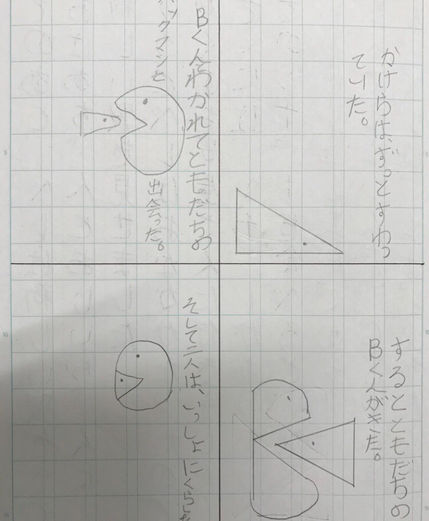 かけらは、ずっとすわっ
ていた。
するとともだちの
Bくんがきた。
Bくんわかれてともだちの
パックマンと
出会った。
そして二人は、いっしょにくらした